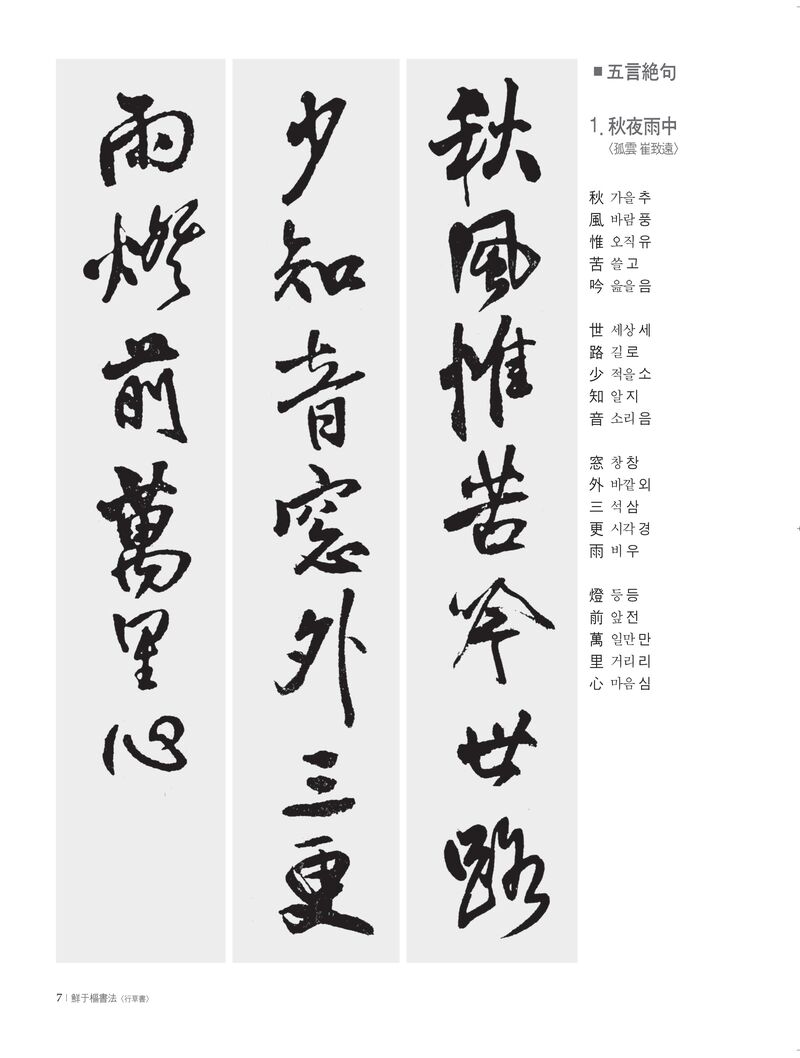 五言絶句
1. 秋夜雨中
〈孤雲 崔致遠〉
秋風惟苦吟世路
少知音窓外三更
雨燈前萬里心
秋 가을 추
風 바람 풍
惟 오직 유
苦 쓸 고
吟 읊을 음
世 세상 세
路 길 로
少 적을 소
知 알 지
音 소리 음
窓 창 창
外 바깥 외
三 석 삼
更 시각 경
雨 비 우
燈 등 등
前 앞 전
萬 일만 만
里 거리 리
心 마음 심
7 | 鮮于樞書法〈行草書〉